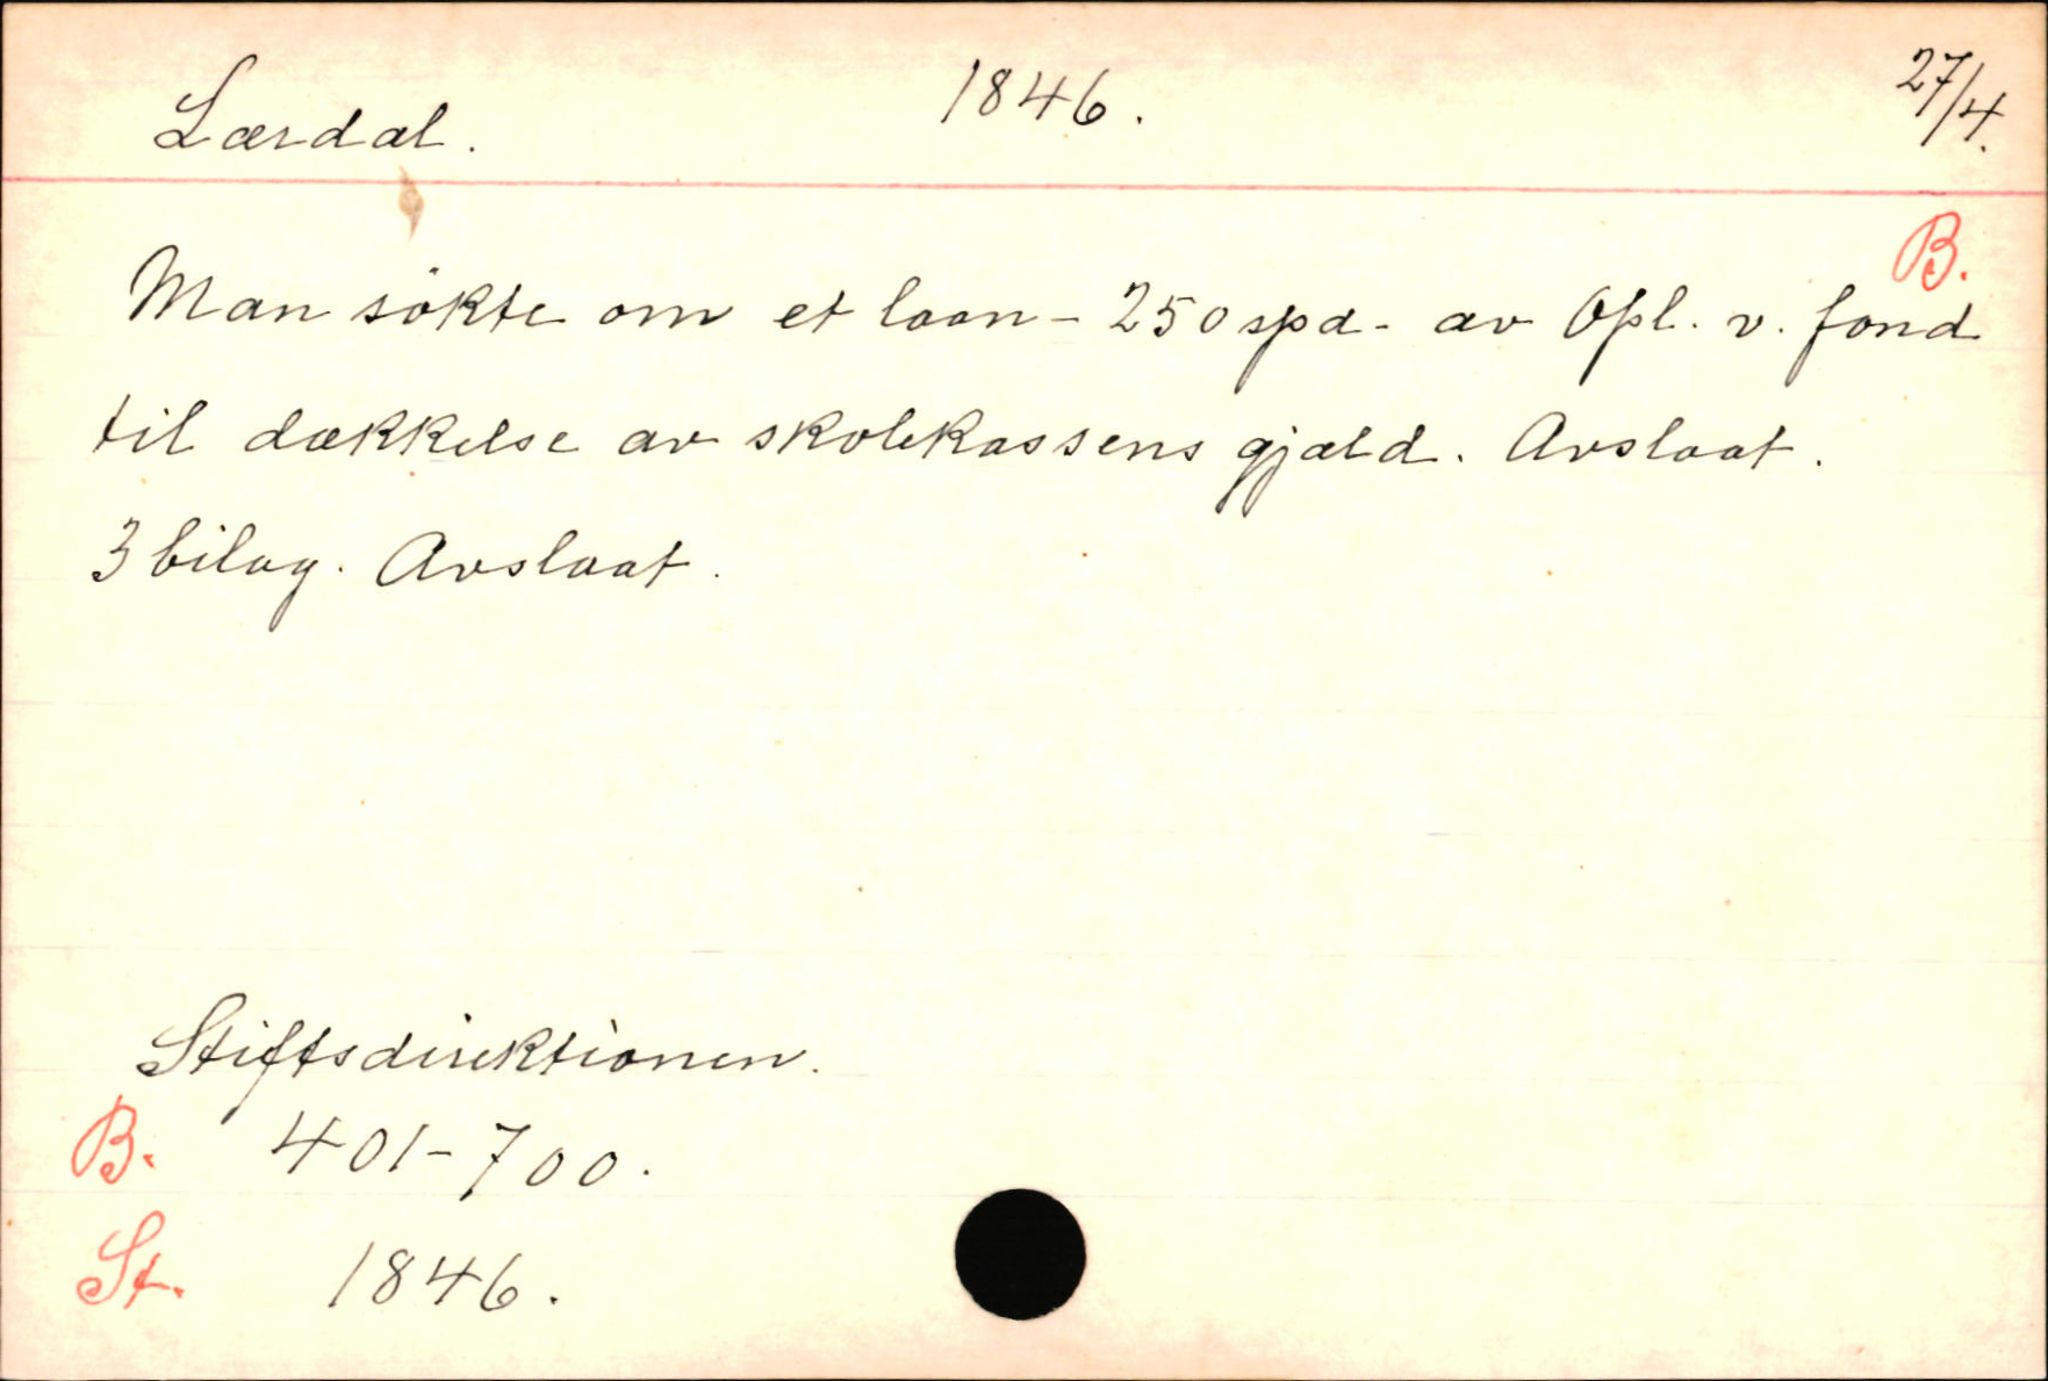 Lærdal. 1846. 27/4.
B.
Man søkte om et laan - 250 spd. av Opl. v. fond
til dækkelse av skolekassens gjæld. Avslaat.
3 bilag. Avslaat.
Stiftsdirektionen.
B. 401-700.
St. 1846.